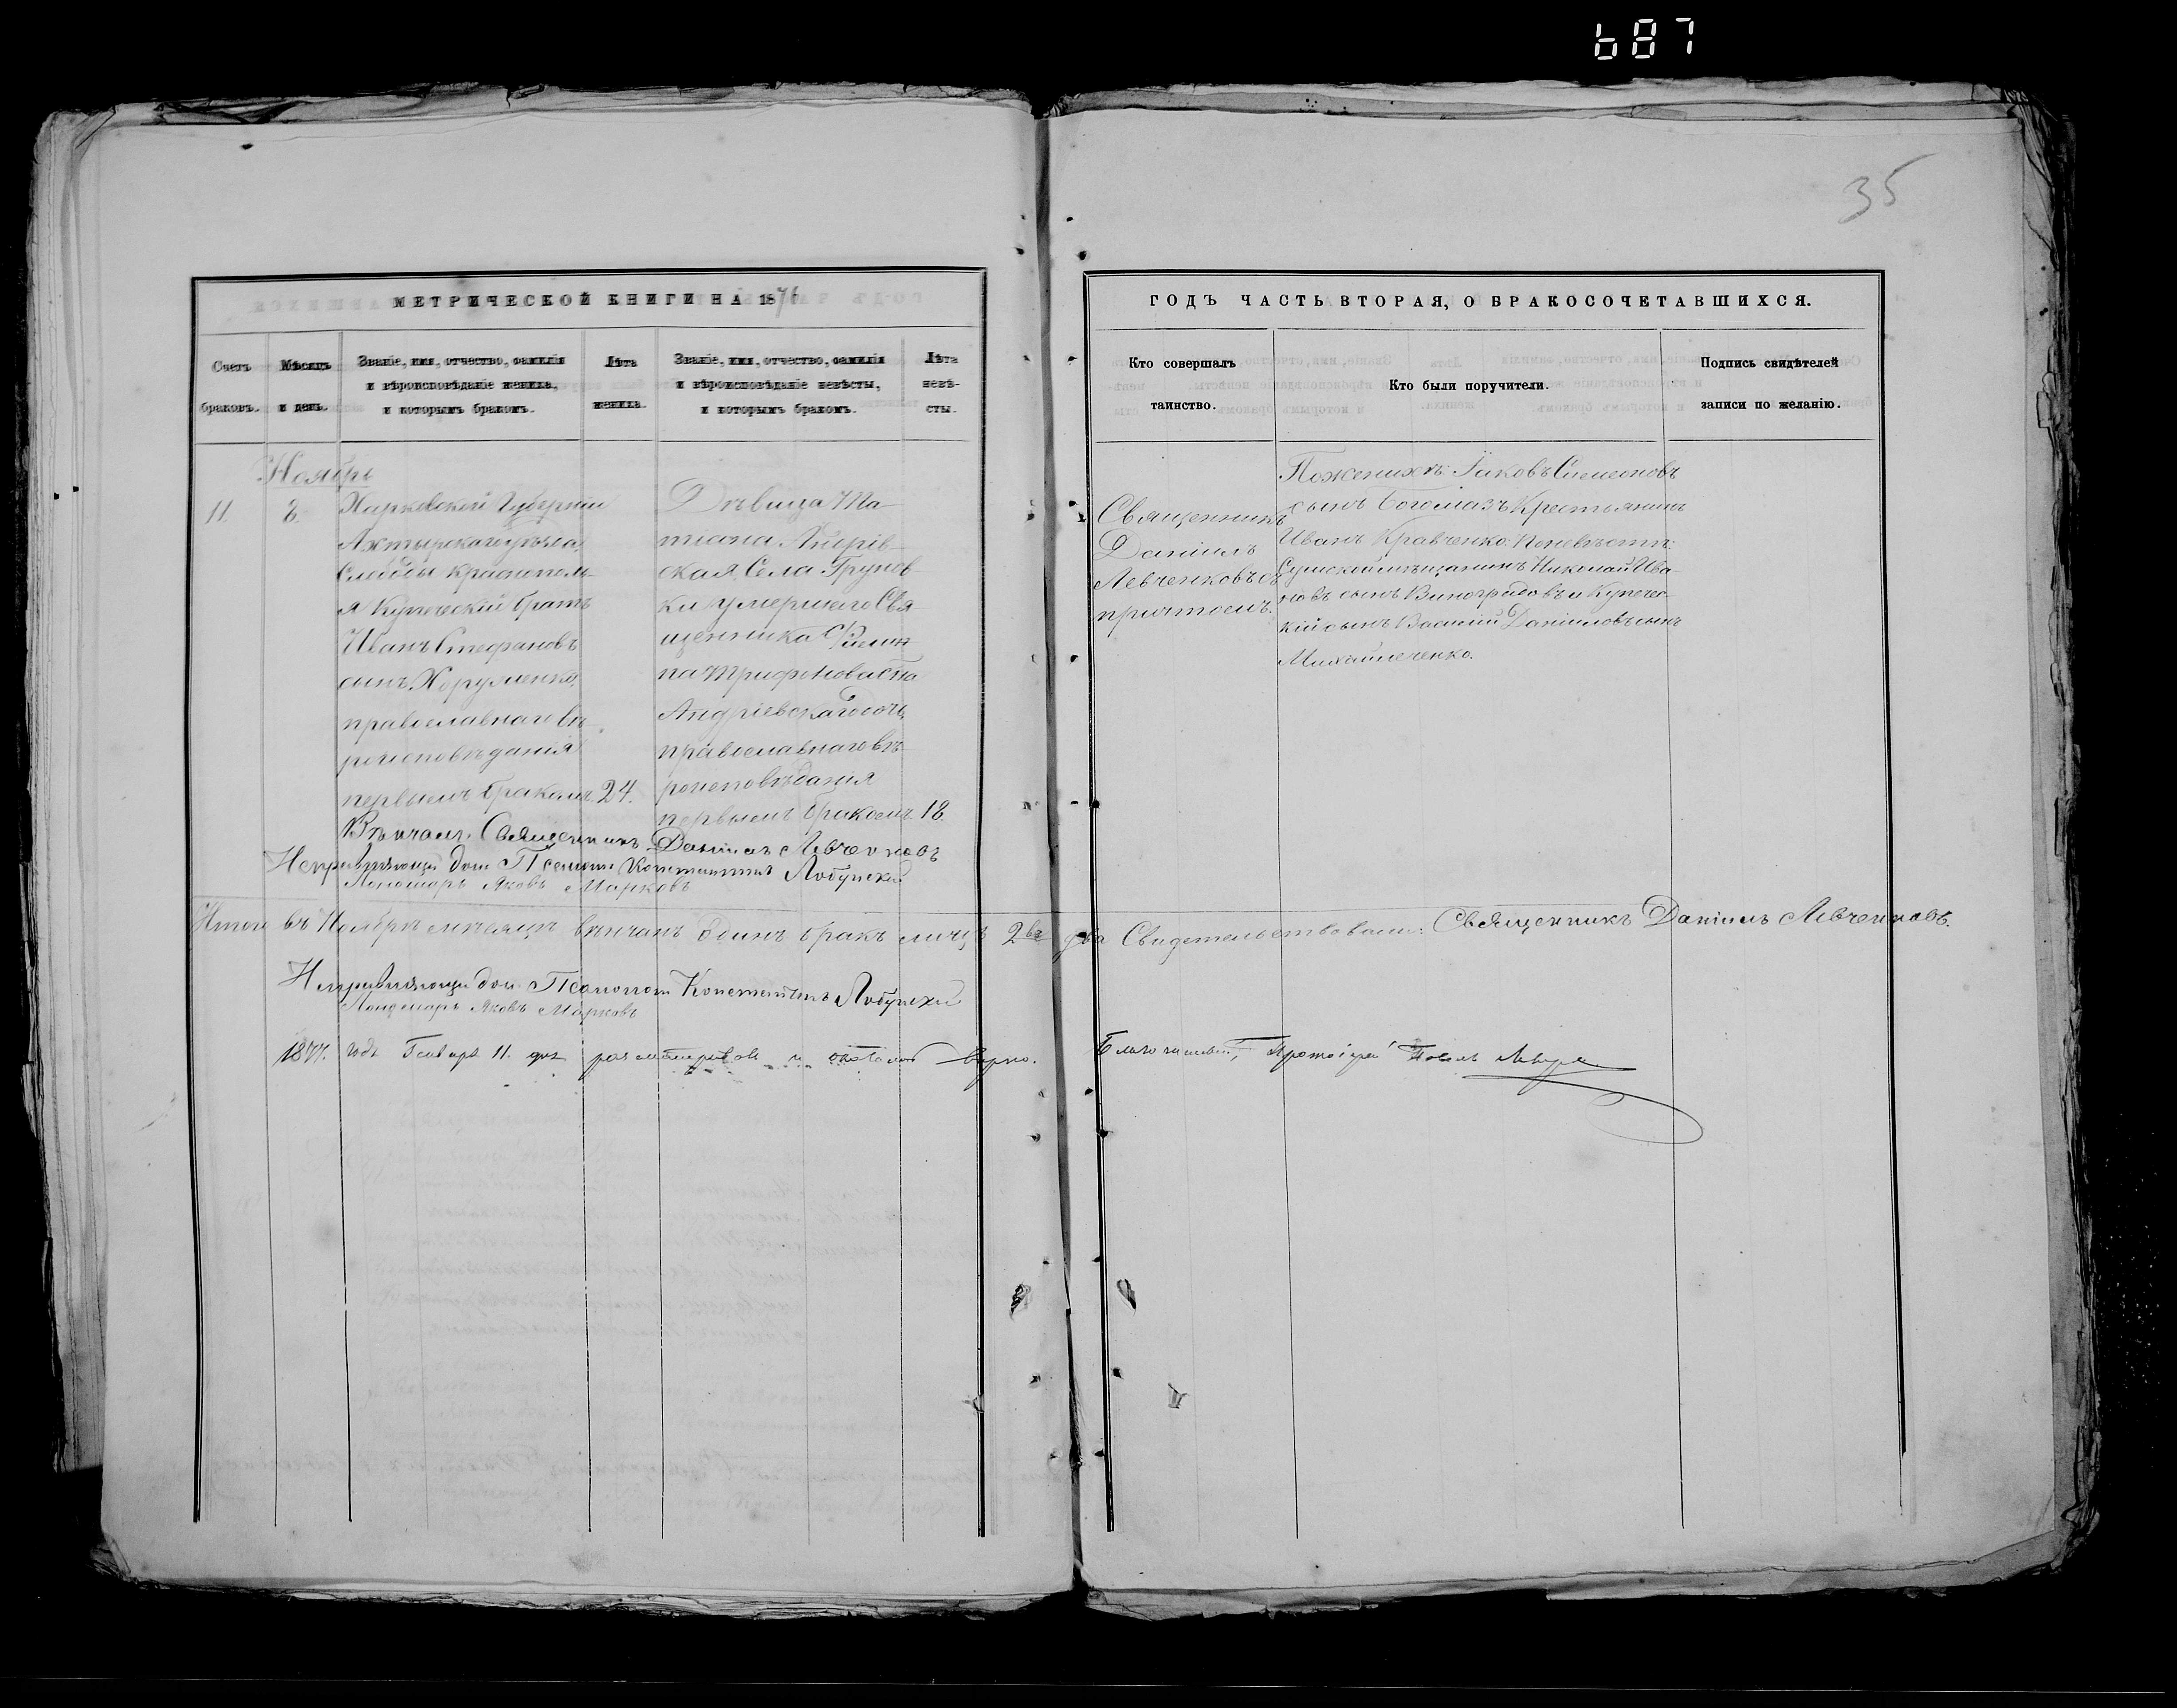 687
35
МЕТРИЧЕСКОЙ КНИГИ НА 1876
ГОДЪ ЧАСТЬ ВТОРАЯ, О БРАКОСОЧЕТАВШИХСЯ.
Счетъ
браковъ.
Мѣсяцъ
и день.
Званіе, имя, отчество, фамилія
и вѣроисповѣданіе жениха,
и которымъ бракомъ.
Лѣта
жениха.
Званіе, имя, отчество, фамилія
и вѣроисповѣданіе невѣсты,
и которымъ бракомъ.
Лѣта
невѣ-
сты.
Кто совершалъ
таинство.
Кто были поручители.
Подпись свидѣтелей
записи по желанію.
Ноябрь
11.
8.
Харковской Губерніи
Ахтырскаго уѣзда,
Слободы Краснополь-
я Купеческій братъ
Иванъ Стефановъ
сынъ
православнаго вѣ-
роисповѣданія
первымъ бракомъ.
24.
Дѣвица Та-
тіана
ская, Села Грунов-
ки умершаго Свя-
щенника Филип-
па Трифонова сына
Андріевскаго дочь,
православнаго вѣ-
роисповѣданія
первымъ бракомъ
18.
Священникъ
Даніилъ
Левченковъ съ
причтомъ.
По женихѣ: Іаковъ Симеоновъ
сынъ Богомазъ Крестьянинъ
Иванъ Кравченко: По невѣстѣ:
Сумской мѣщанинъ Николай Ива-
новъ сынъ Виноградовъ и Купечес-
кій сынъ Василій Даніиловъ сынъ
Михайличенко.
Вѣнчалъ: Священникъ Даніилъ Левченковъ
Исправляющій дол. Псаломщ. Константинъ Лобунскій
Пономарь Яковъ Марковъ
Итого въ Ноябрѣ мѣсяцѣ вѣнчанъ одинъ бракъ лицъ 2ва два Свидетельствовали: Священникъ Даніилъ Левченковъ.
Исправляющій дол. Псаломщ. Константинъ Лобунскій
Пономарь Яковъ Марковъ
1877. года Генваря 11. дня
вѣрно. Благочинный, Протоіерей Павелъ